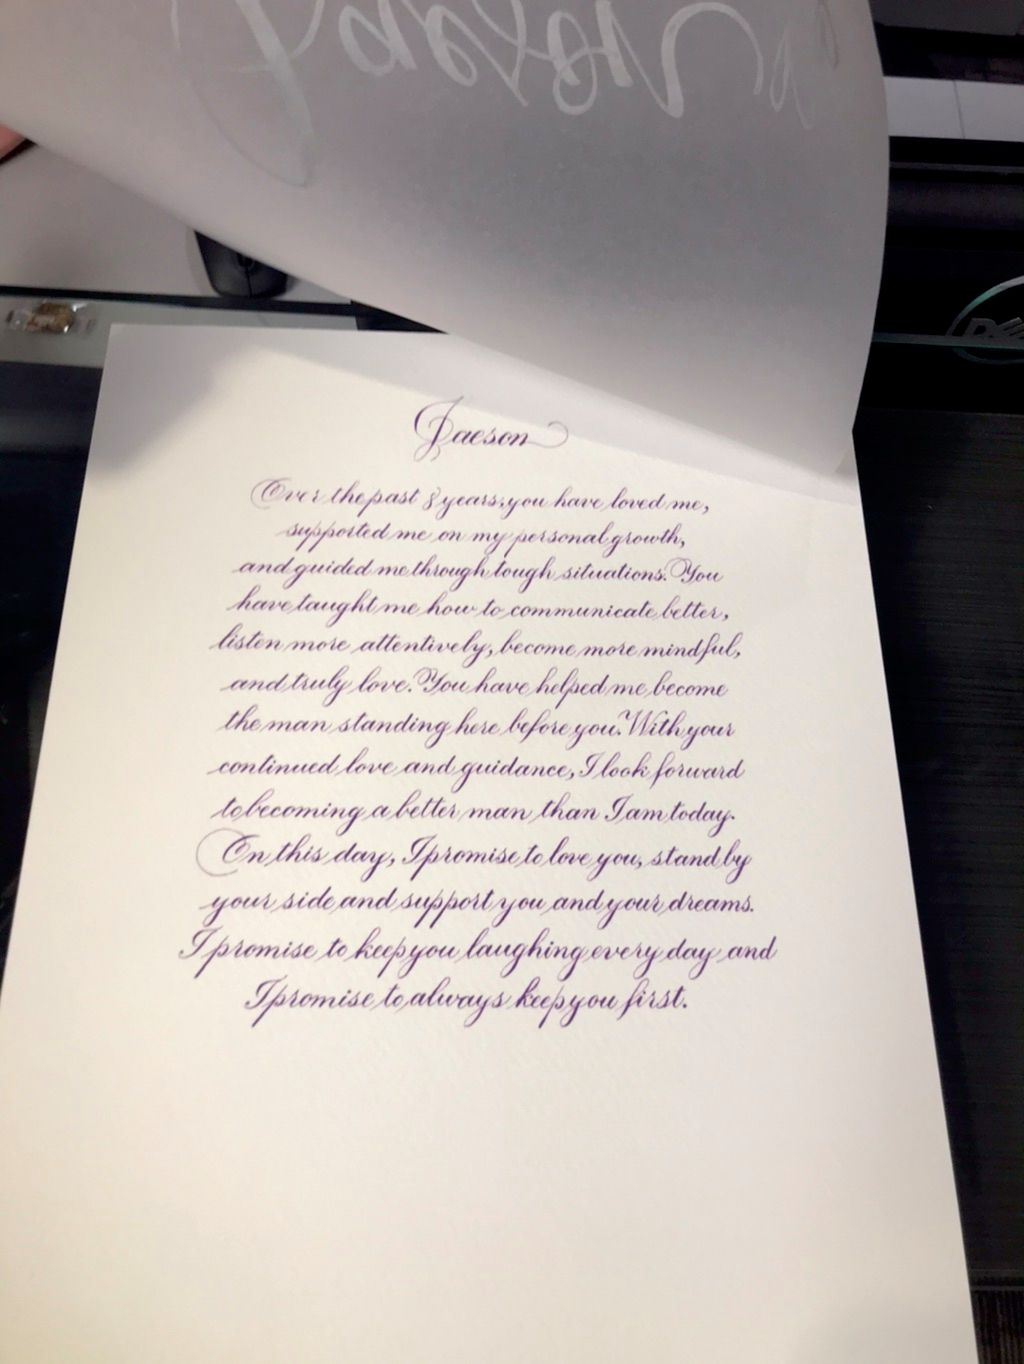 Jaeson
Jaeson
Over the past 8 years, you have loved me,
supported me on my personal growth,
and guided me through tough situations. You
have taught me how to communicate better,
listen more attentively, become more mindful,
and truly love. You have helped me become
the man standing here before you. With your
continued love and guidance, I look forward
to becoming a better man than I am today.
On this day, I promise to love you, stand by
your side and support you and your dreams.
I promise to keep you laughing every day and
I promise to always keep you first.